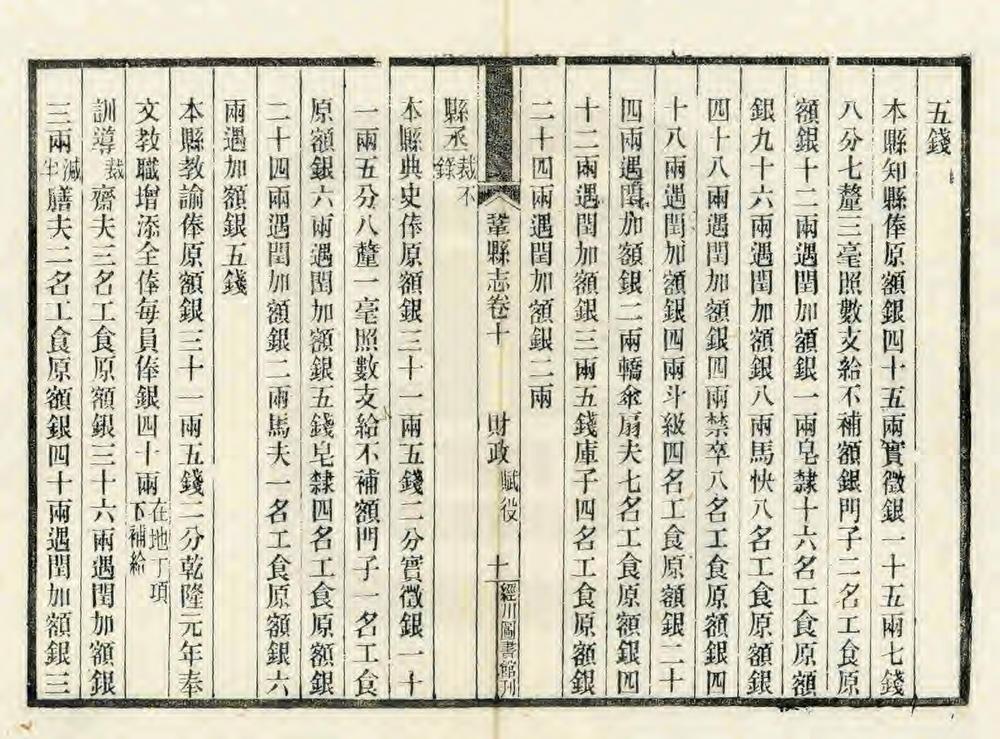 五錢
本縣知縣俸原額銀四十五兩實徵銀一十五兩七錢
八分七釐三毫照數支給不補額銀門子二名工食原
額銀十二兩遇閏加額銀一兩皂隸十六名工食原額
銀九十六兩遇閏加額銀八兩馬快八名工食原額銀
四十八兩遇閏加額銀四兩禁卒八名工食原額銀四
十八兩遇閏加額銀四兩斗級四名工食原額銀二十
四兩遇閏加額銀二兩轎傘扇夫七名工食原額銀四
十二兩遇閏加額銀三兩五錢庫子四名工食原額銀
二十四兩遇閏加額銀二兩
縣丞裁不錄
鞏縣志卷十 財政 賦役 十 經川圖書館刊
本縣典史俸原額銀三十一兩五錢二分實徵銀一十
一兩五分八釐一毫照數支給不補額門子一名工食
原額銀六兩遇閏加額銀五錢皂隸四名工食原額銀
二十四兩遇閏加額銀二兩馬夫一名工食原額銀六
兩遇加額銀五錢
本縣教諭俸原額銀三十一兩五錢二分乾隆元年奉
文教職增添全俸每員俸銀四十兩在地丁項下補給
訓導裁齋夫三名工食原額銀三十六兩遇閏加額銀
三兩減半膳夫二名工食原額銀四十兩遇閏加額銀三